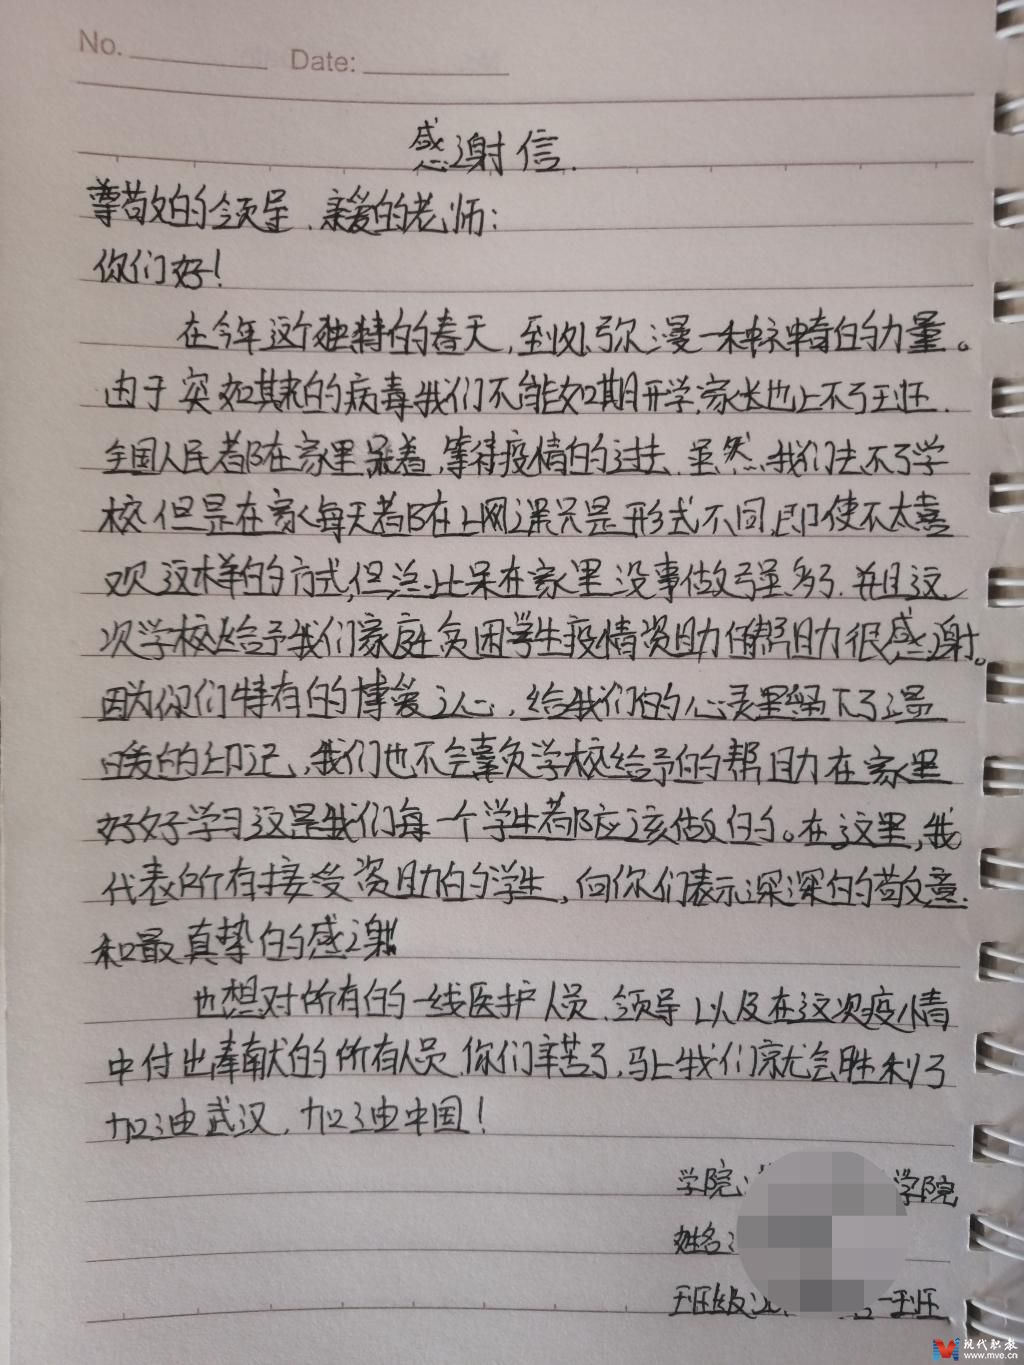 No. Date:
感谢信.
尊敬的领导、亲爱的老师:
你们好!
在今年这个独特的春天,到处弥漫一种神奇的力量。
由于突如其来的病毒我们不能如期开学,家长也上不了班.
全国人民都在家里呆着,等待疫情的过去.虽然,我们去不了学
校但是在家、每天都在上网课只是形式不同,即使不太喜
欢这样的方式,但总比呆在家里没事做强多了.并且这
次学校给予我们家庭贫困学生疫情资助帮助很感谢。
因为你们特有的博爱之心,给我们的心灵里留下了温
暖的印记,我们也不会辜负学校给予的帮助在家里
好好学习这是我们每一个学生都应该做的。在这里,我
代表所有接受资助的学生,向你们表示深深的敬意.
和最真挚的感谢!
也想对所有的一线医护人员、领导以及在这次疫情
中付出奉献的所有人员.你们辛苦了,马上我们就会胜利了
加油武汉,加油中国!
学院: 学院
姓名:
班级: 一班
现代职教
www.mve.cn